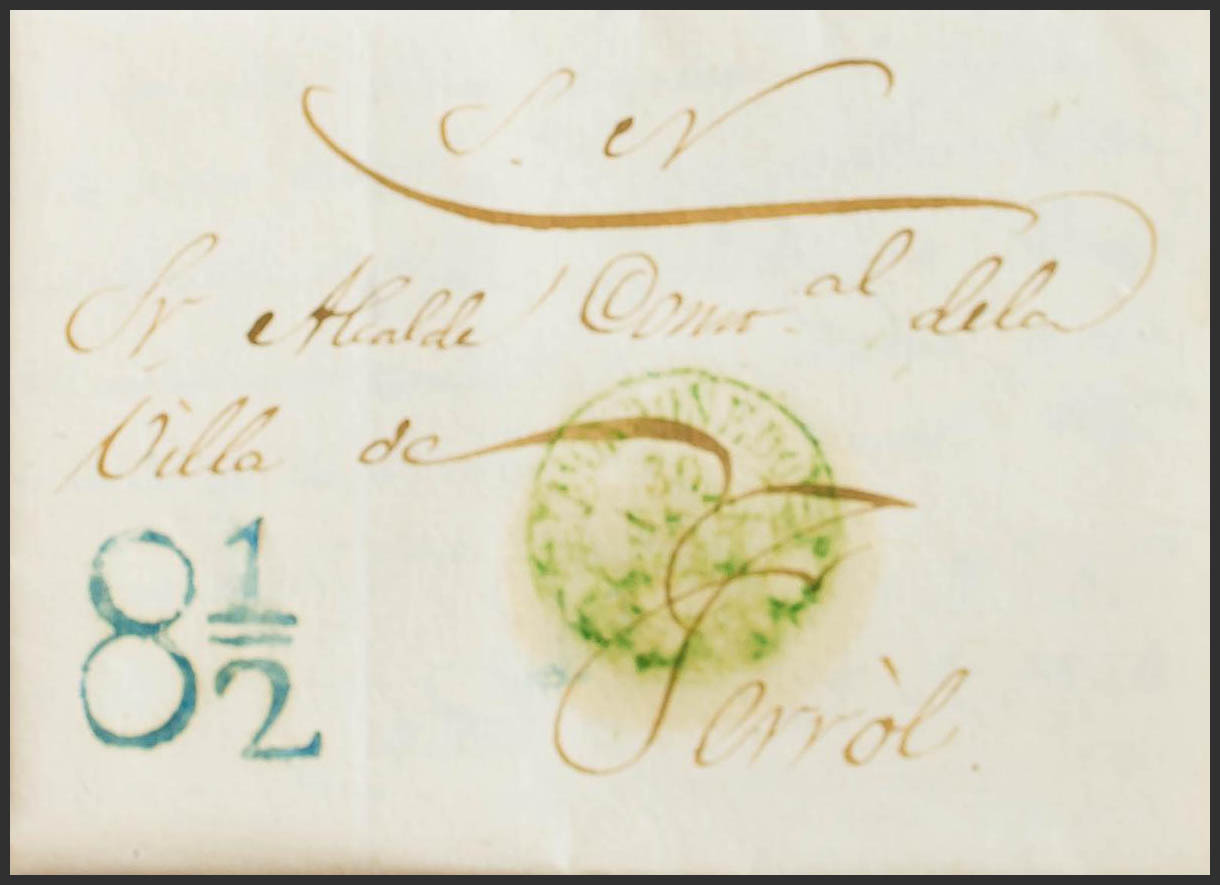 S. N
Sr Alcalde Como.al dela
Villa de
Ferròl.
8 1/2